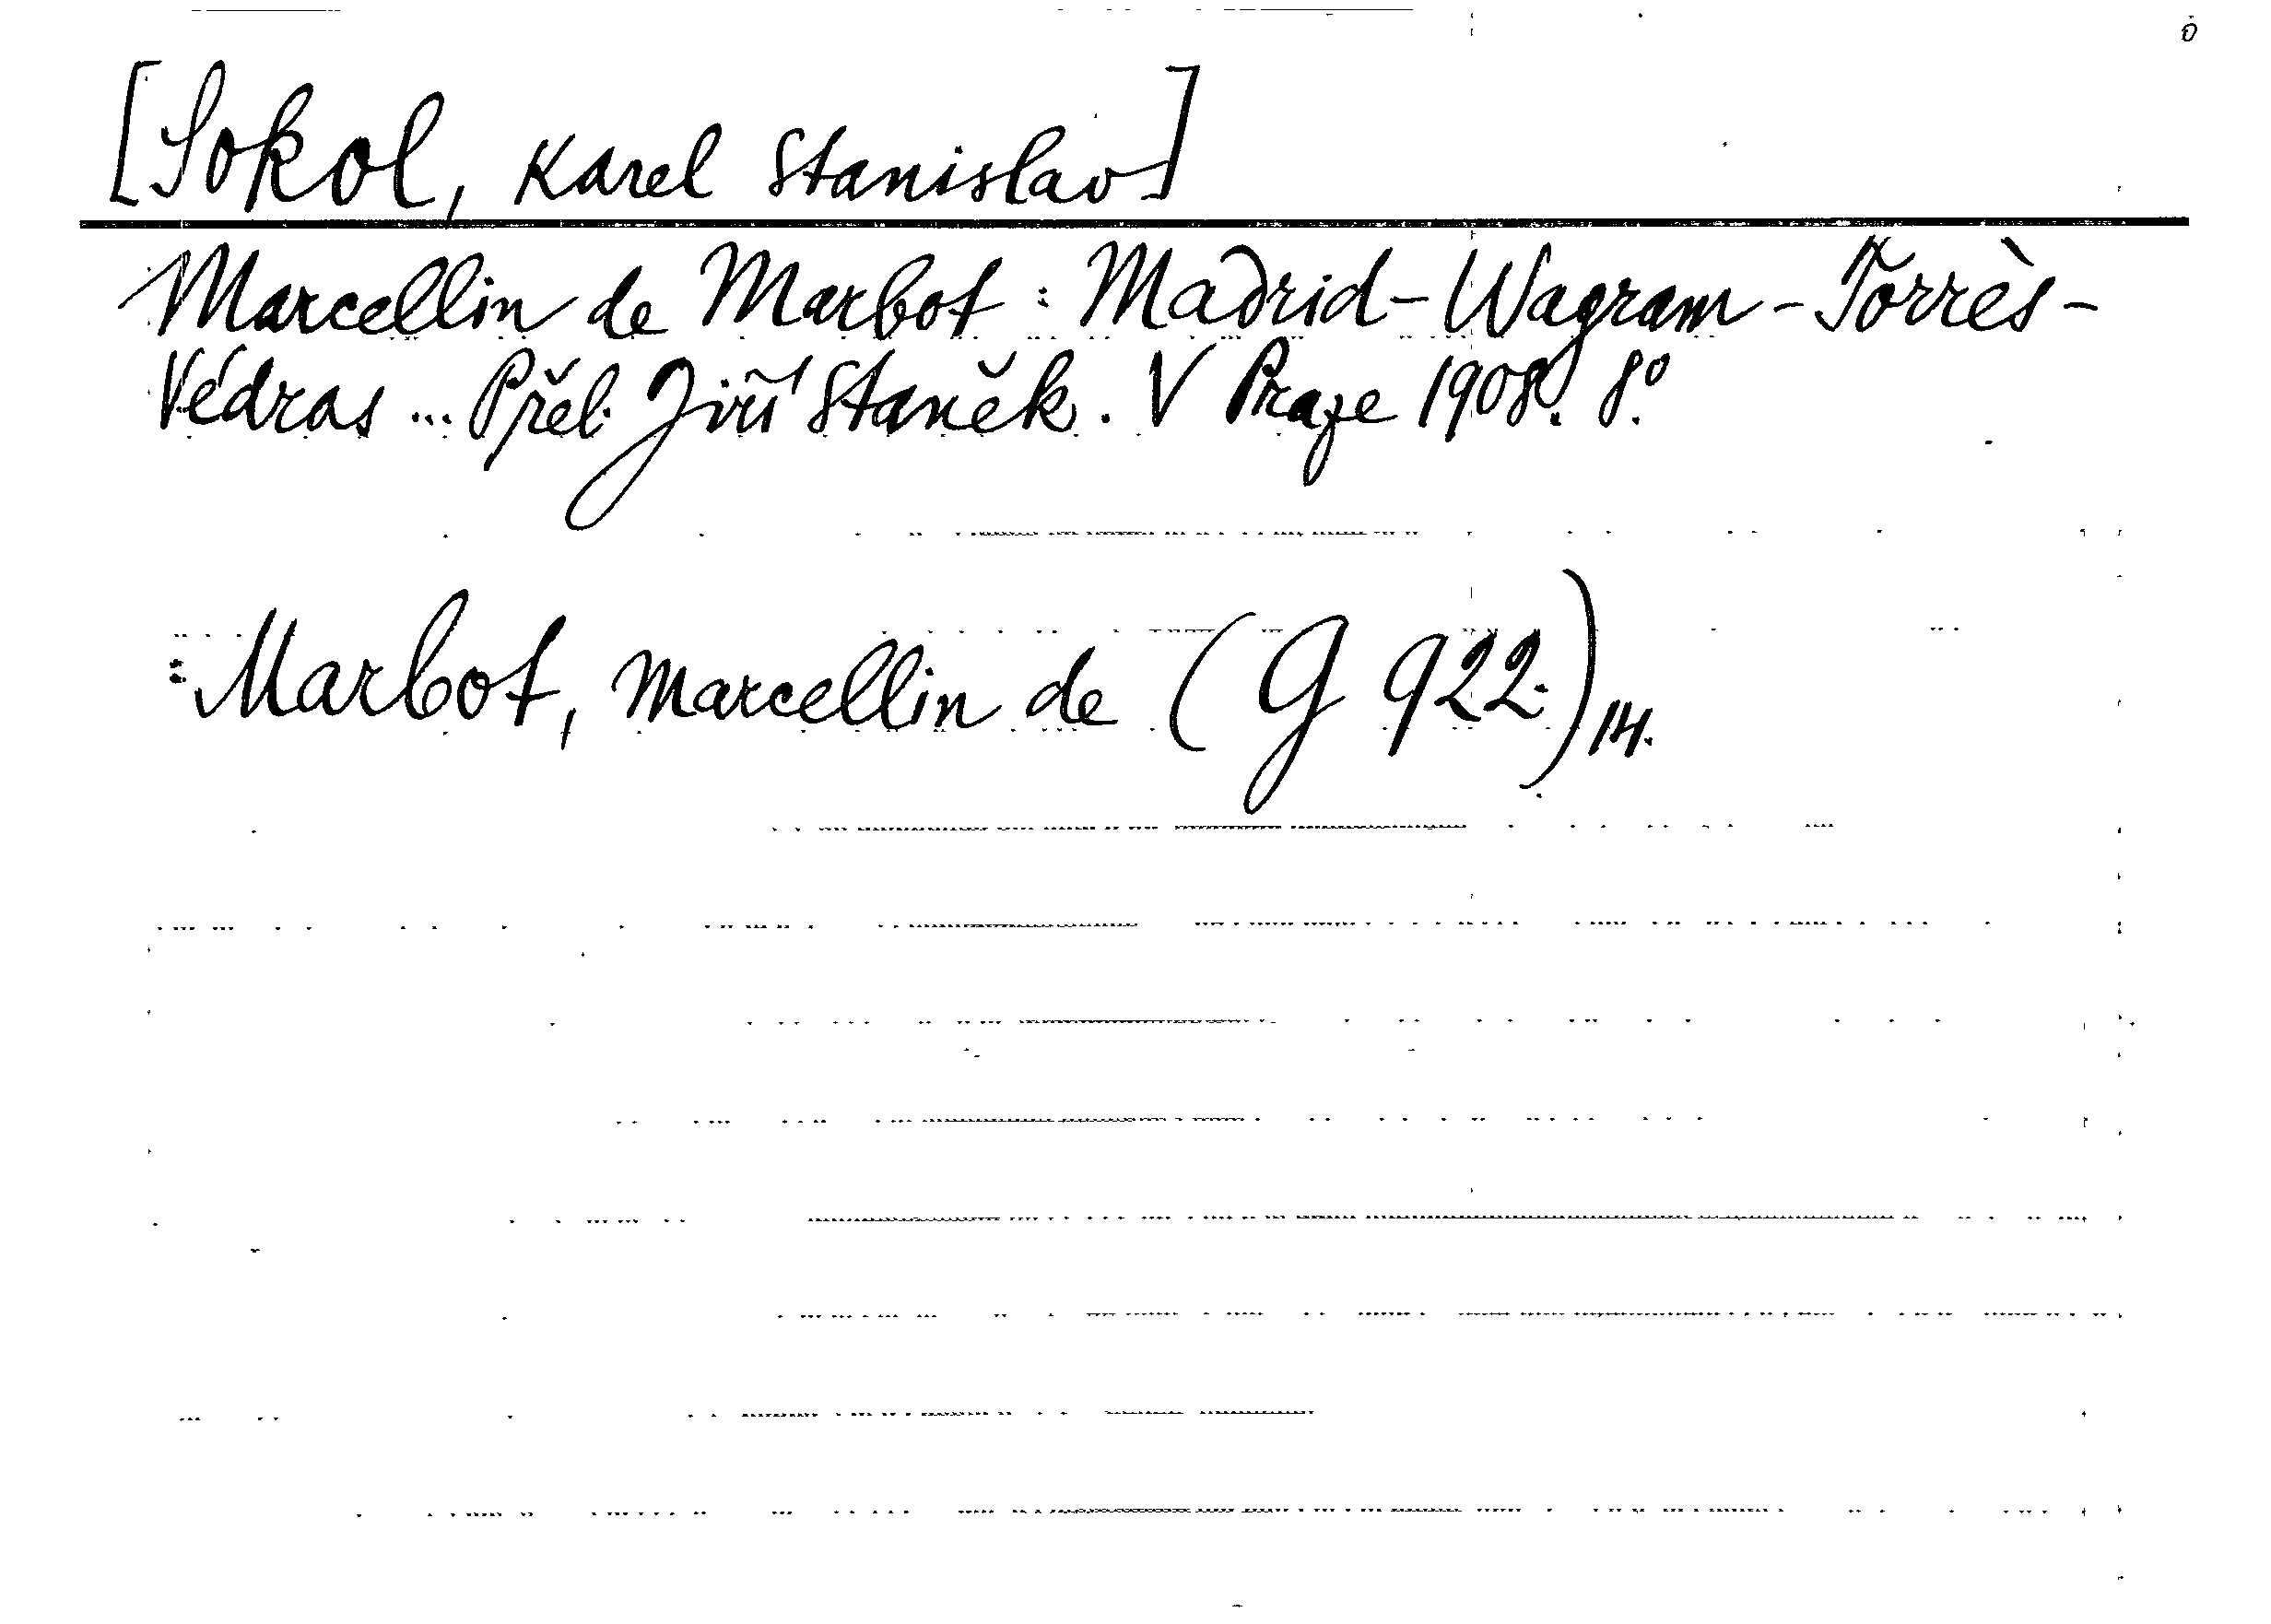 [Sokol, Karel Stanislav]
Marcellin de Marbot: Madrid-Wagram-Torrès-
Védras... Přel. Jiří Staněk. V Praze 1908. 8.º
:Marbot, Marcellin de (G 922.)14.